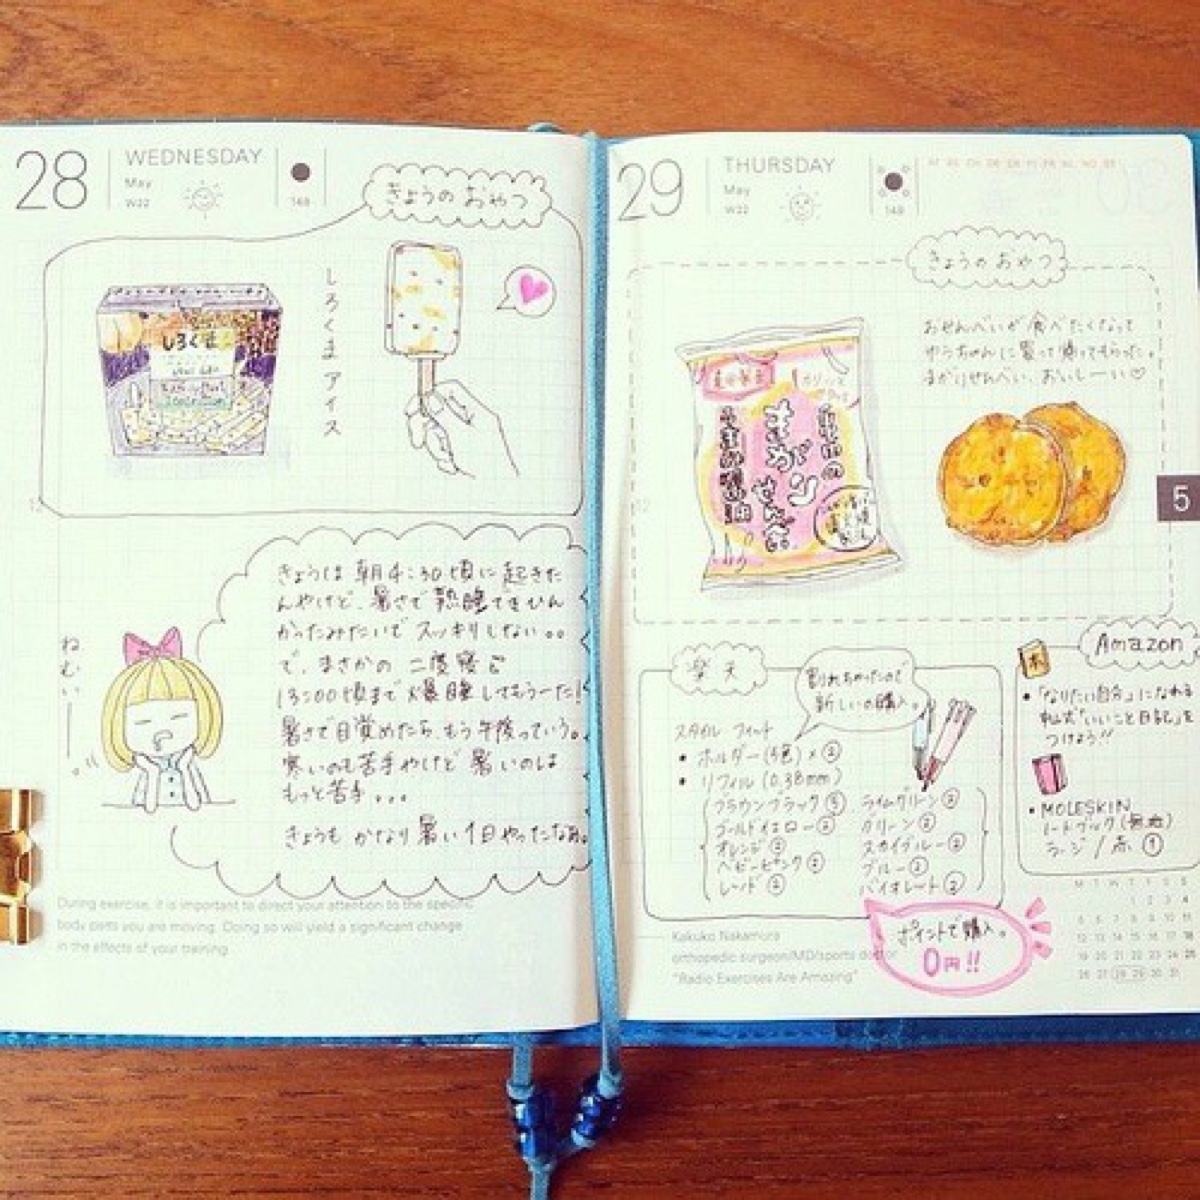 28
WEDNESDAY
May
W22
148
きょうのおやつ
しろくま
しろくまアイス
きょうは 朝4:30頃に起きた
んやけど、暑さで熟睡できひん
かったみたいで スッキリしない。。
で、まさかの 二度寝で
13:00頃まで爆睡してもうーた!
暑さで目覚めたら、もう午後っていう。
寒いのも苦手やけど 暑いのは
もっと苦手...
きょうも かなり暑い1日やったなぁ。
ねむい
During exercise, it is important to direct your attention to the specific
body parts you are moving. Doing so will yield a significant change
in the effects of your training.
29
THURSDAY
May
W22
149
きょうのおやつ
おせんべいが食べたくなって
ゆうちゃんに買って帰ってもらった。
まがりせんべい、おいしーい♡
まがり
せんべい
5
楽天
割れちゃったので
新しいの購入。
スタイル フィット
• ホルダー(3色)×②
• リフィル(0.38mm)
ブラウンブラック
ゴールドイエロー②
オレンジ②
ベビーピンク②
レッド②
ライムグリーン②
グリーン②
スカイブルー②
ブルー②
バイオレット②
Amazon
• 「なりたい自分」になれる
私式"いいこと日記"を
つけよう!!
• MOLESKIN
ノートブック(無地)
ラージ/赤 ①
ポイントで購入。
0円!!
Kakuko Nakamura
orthopedic surgeon/MD/sports doctor
"Radio Exercises Are Amazing"
M T W T F S S
1 2 3 4
5 6 7 8 9 10 11
12 13 14 15 16 17 18
19 20 21 22 23 24 25
26 27 28 29 30 31